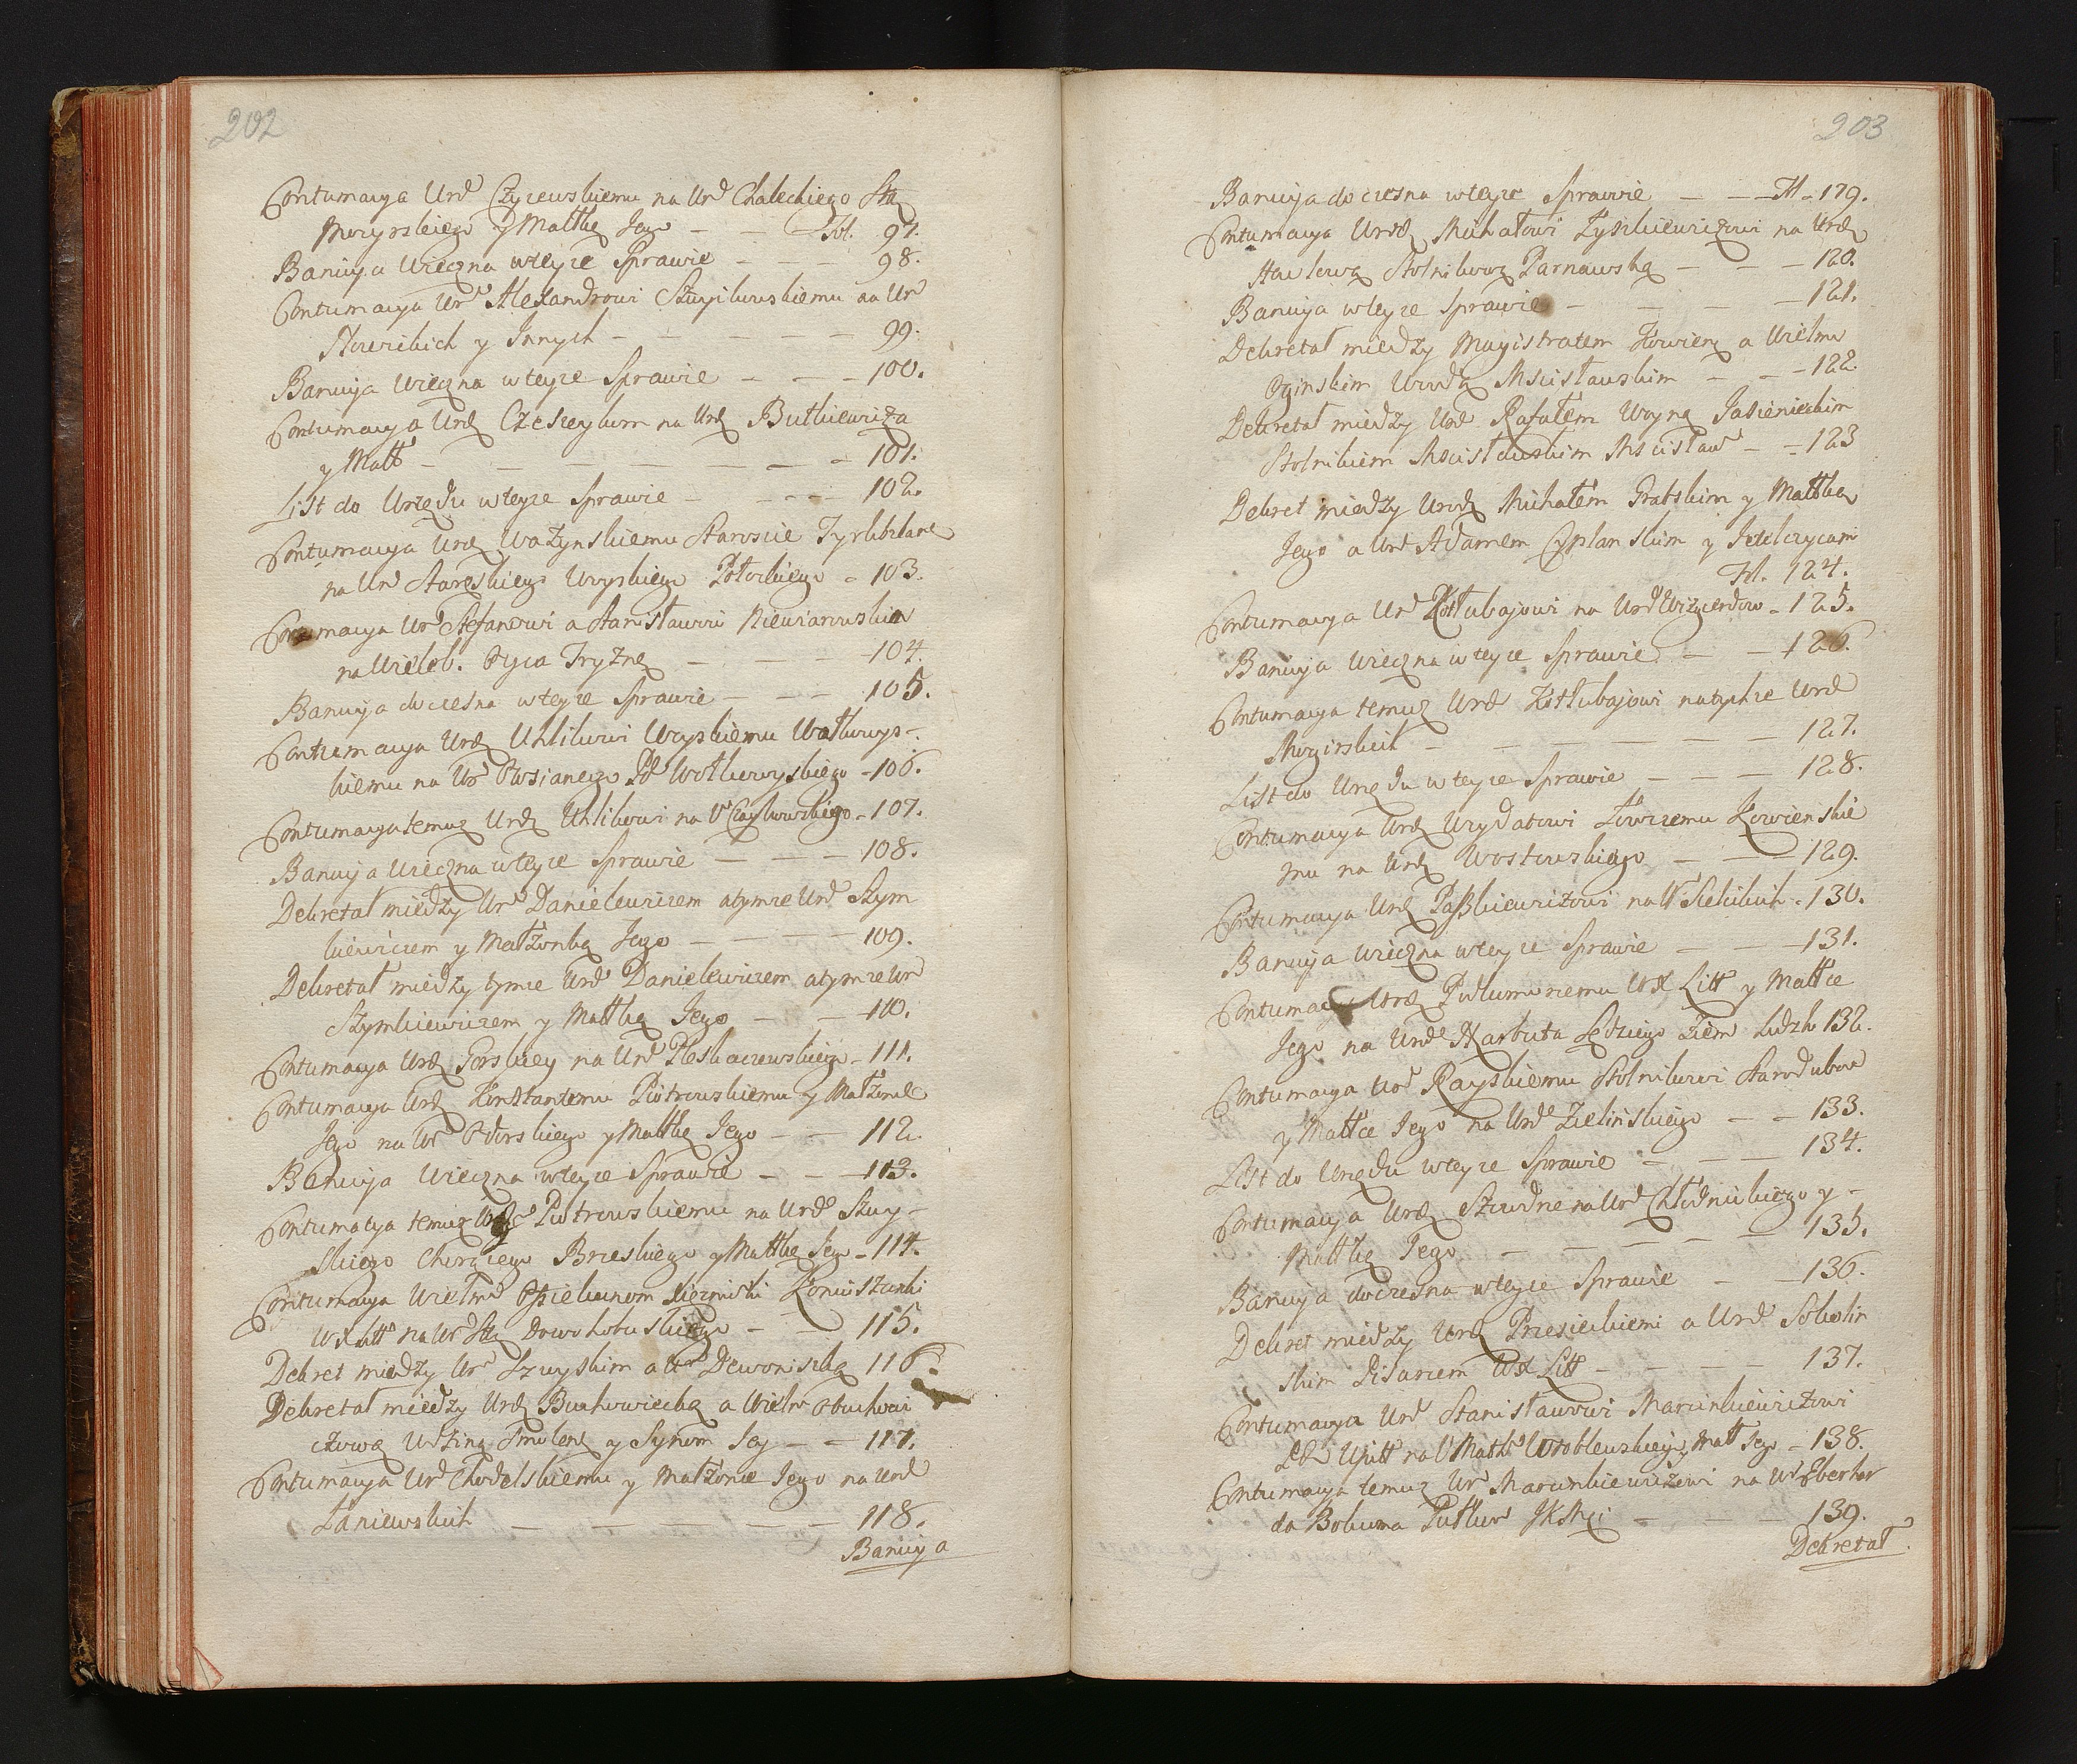 202
Contumacya Urd Czyzewskiemu na Ur Chaleckiego Stę
Mozyrskiego y Małtkę Jego — — Fol. 97.
Banicya Wieczna wteyze Sprawie — — — 98.
Contumacya Ur Alexandrowi na Ur
y Innych — — — — — 99.
Banicya Wieczna wteyze Sprawie — — — 100.
Contumacya Urdz Czeszeykom na Urdz Butkiewicza
y Małt — — — — — — 101.
List do Urzędu wteyze Sprawie — — — 102.
Contumacya Urdz Wazynskiemu Staroscie
na Ur Woyskiego Połockiego — 103.
Contumacya Ur Stefanowi a Stanisławowi
na Wieleb. Oyca Tryznę — — — 104.
Banicya doczesna wteyze Sprawie — — — 105.
Contumacya Urdz Uklikowi Woyskiemu Wołkowys-
kiemu na Ur Owsianego Pł Wołkowyskiego — 106.
Contumacya temuz Urdz Uklikowi na U — 107.
Banicya Wieczna wteyze Sprawie — — — 108.
Dekretał między Ur Danielewiczem atymze Urd Szym
kiewiczem y Małżonką Jego — — — 109.
Dekretał między tymze Urd Danielewiczem atymze Ur
Szymkiewiczem y Małtką Jego — — 110.
Contumacya Urdz Gorskiey na Urd Pleskaczewskiego — 111.
Contumacya Urdz Konstantemu Piotrowskiemu y Małzonce
Jego na Ur Odorskiego y Małtkę Jego — — 112.
Banicya Wieczna wteyze Sprawie — — 113.
Contumacya temuz Urdz Piotrowskiemu na Urd Szuy-
skiego Chorążego Brzeskiego y Małtkę Jego — 114.
Contumacya Wielmd Opiekunom Xiezniczki
WXLitt na Ur Stę — — 115.
Dekret między Ur Szuyskim a Ur 116.
Dekretał między Urdz Buchowiecką a Wielm Obuchowi
czową Wdziną Smolens y Synem Jey — — 117.
Contumacya Ur Chodelskiemu y Małzonce Jego na Urd
Zaniewskich — — — — — — 118.
Banicya
203
Banicya doczesna wteyze Sprawie — — — Fl. 179.
Contumacya Urdz Michałowi Zyszkiewiczowi na Urdz
Stolnikową Parnawską — — — 120.
Banicya wteyze Sprawie — — — — 121.
Dekretał między Magistratem Kowien a Wielm
Oginskim Wwdą Mscisławskim — — — 122.
Dekretał między Urd Rafałem Woyną Jasienieckim
Stolnikiem Mscisławskim — — 123
Dekret między Urdz Michałem Grabskim y Małtką
Jego a Urd Adamem y
Fol. 124.
Contumacya Urd Kołłubajowi na Urd — 125.
Banicya Wieczna wteyze Sprawie — — 126.
Contumacya temuz Urd Kołłubajowi natychze Urd
— — — — — — 127.
List do Urzędu wteyze Sprawie — — — 128.
Contumacya Urdz Łowczemu Kowienskie
mu na Urdz Wostowskiego — — — 129.
Contumacya Urdz Paszkiewiczowi na Ur Sielickich — 130.
Banicya Wieczna wteyze Sprawie — — — 131.
Contumacya Urdz WX Litt y Małtce
Jego na Urd Narbuta Sędziego Ziem Lidzk 132.
Contumacya Urd Rayskiemu Stolnikowi Starodubow
y Małtce Jego na Urd Zielinskiego — — 133.
List do Urzędu wteyze Sprawie — — — 134.
Contumacya Urdz na Urd Chłudnickiego y —
Małtkę Jego — — — — — 135.
Banicya doczesna wteyze Sprawie — — 136.
Dekret między Urdz Przesieckiemi a Urd Sobolin
skim Pisarzem WX Litt — — — — 137.
Contumacya Urd Stanisławowi Marcinkiewiczowi
na U Wroblewskiego y Małt Jego — 138.
Contumacya temuz Ur Marcinkiewiczowi na Ur Eberhar
da JKMci — — — — 139.
Dekretał.